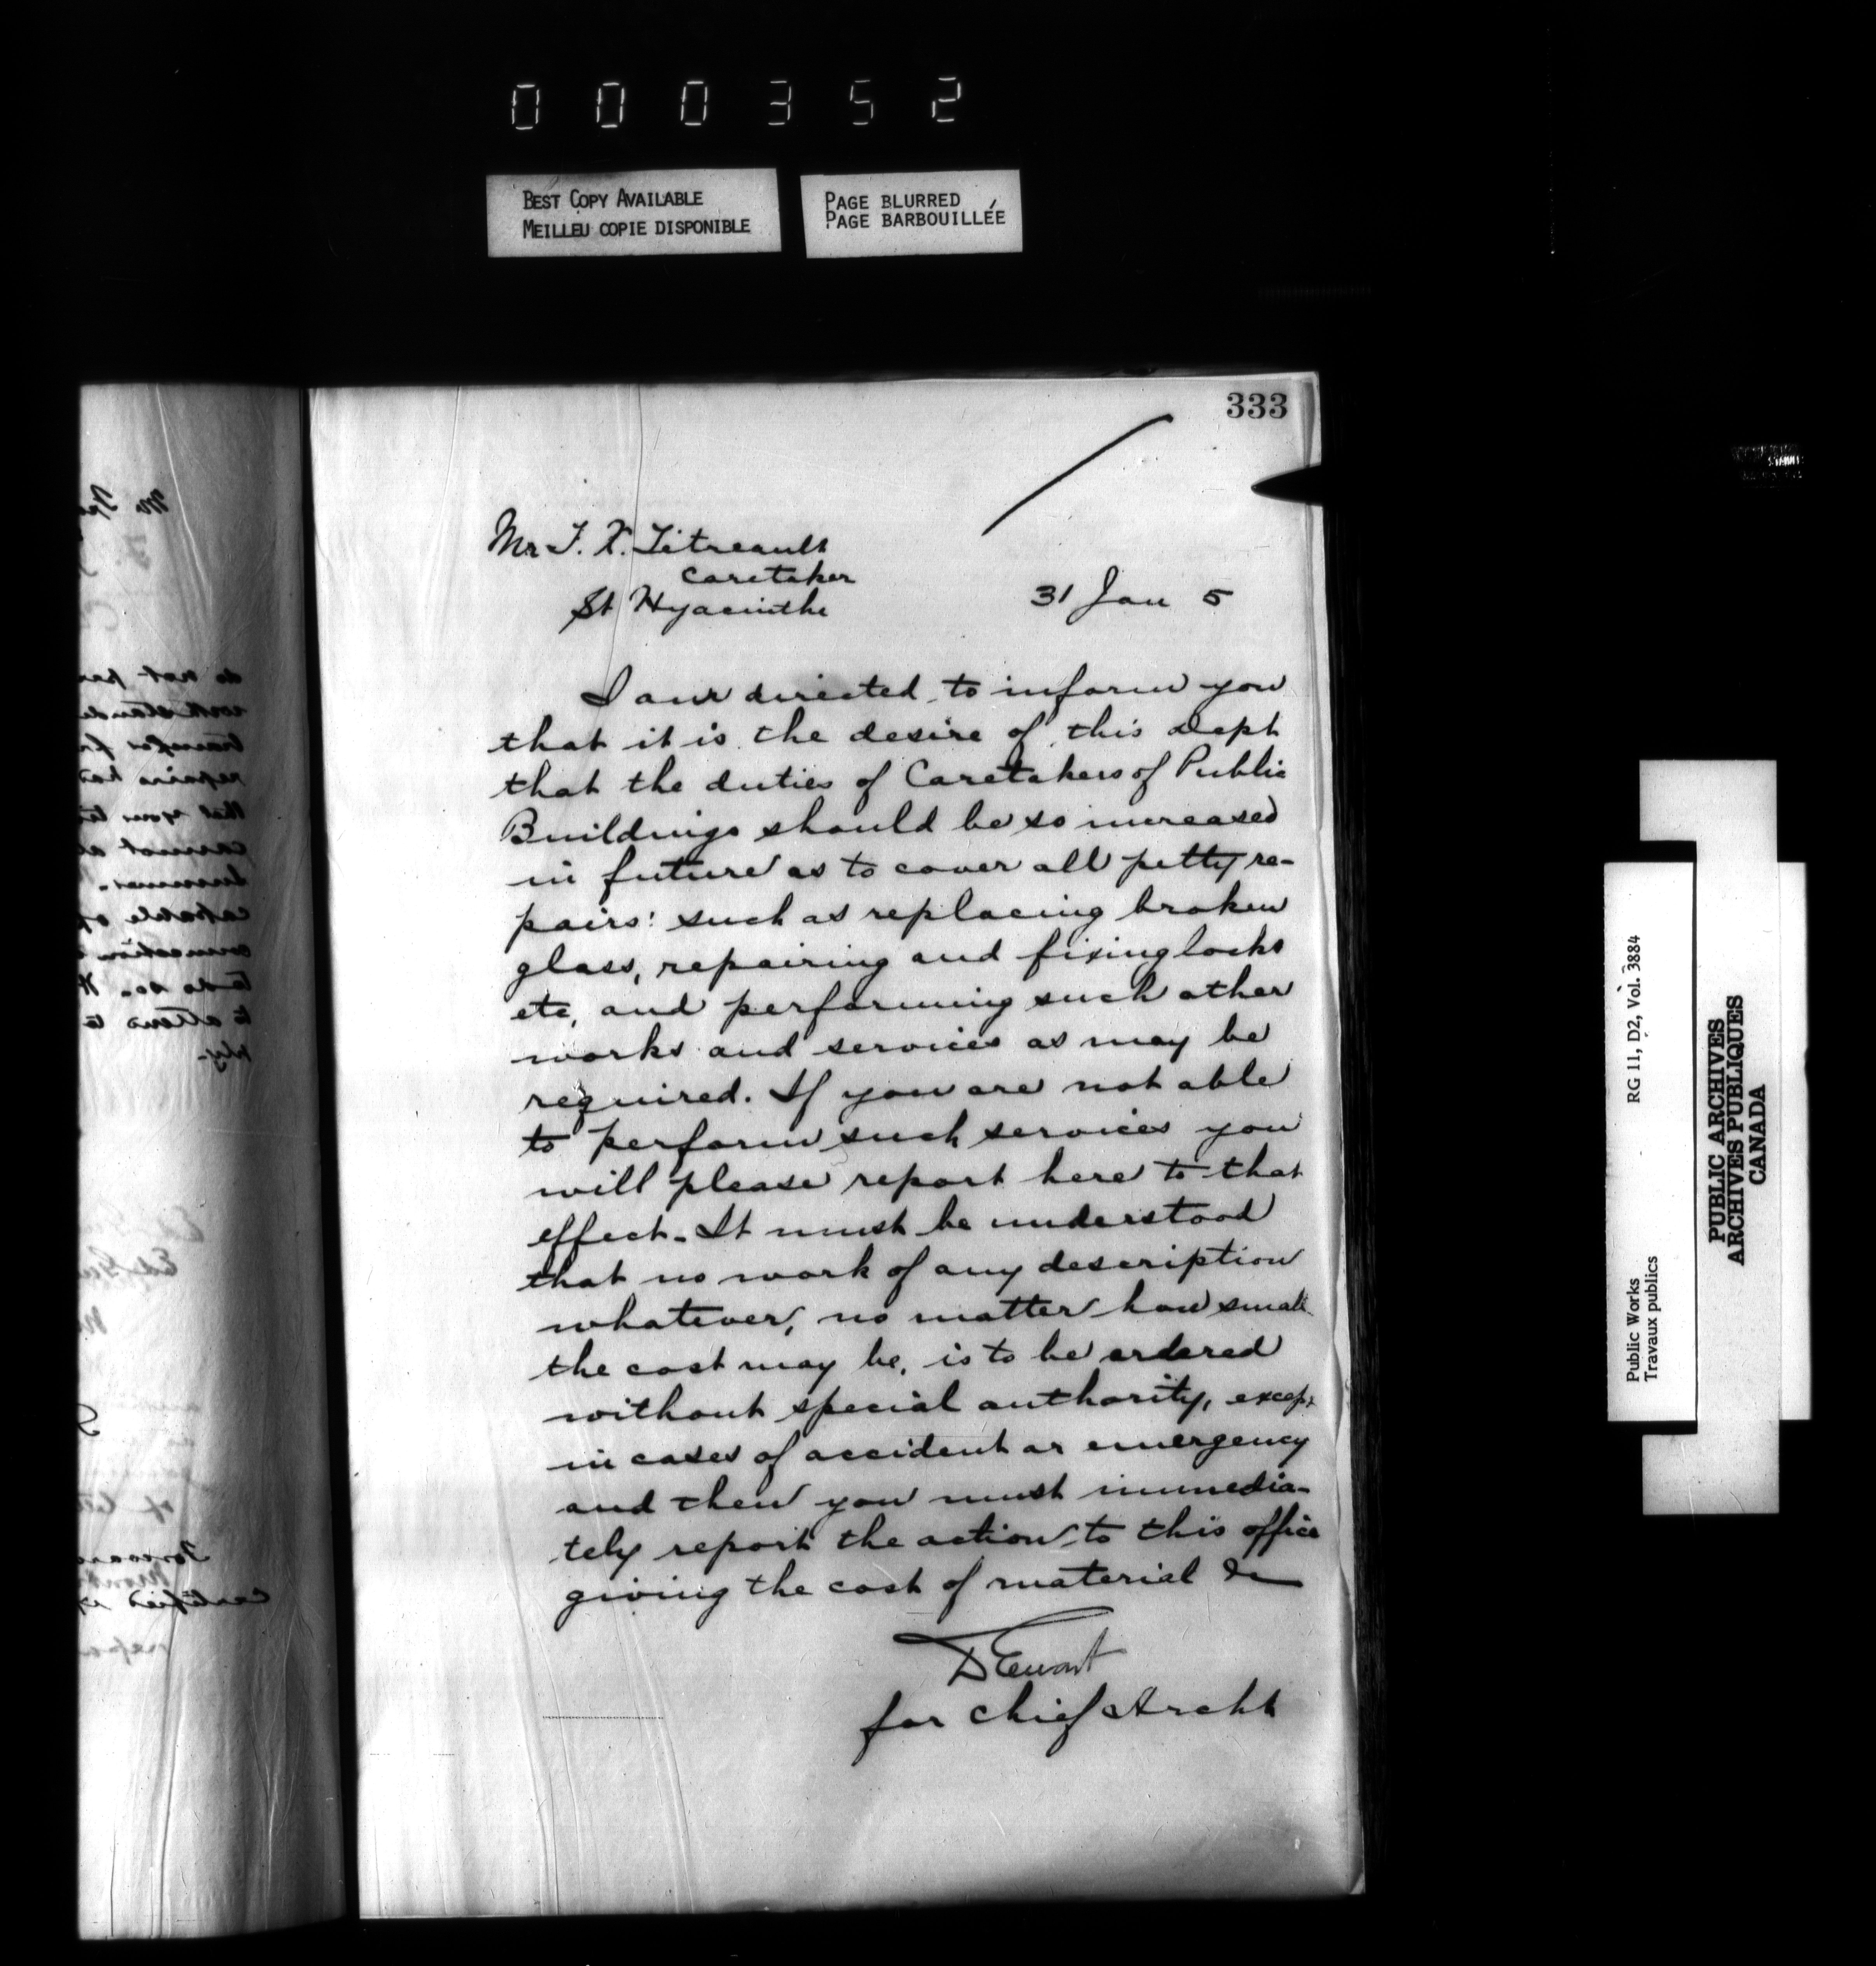 000352
BEST COPY AVAILABLE
MEILLEU COPIE DISPONIBLE
PAGE BLURRED
PAGE BARBOUILLÉE
333
Mr F. X. Titreault
Caretaker
St Hyacinthe
31 Jan 5
I am directed to inform you
that it is the desire of this Dept
that the duties of Caretakers of Public
Buildings should be so increased
in future as to cover all petty re-
pairs: such as replacing broken
glass, repairing and fixing locks
etc, and performing such other
works and services as may be
required. If you are not able
to perform such services you
will please report here to that
effect. It must be understood
that no work of any description
whatever, no matter how small
the cost may be, is to be ordered
without special authority, except
in cases of accident or emergency
and then you must immedia-
tely report the action to this office
giving the cost of material &c
D Ewart
for Chief Archt
Public Works
Travaux publics
RG 11, D2, Vol. 3884
PUBLIC ARCHIVES
ARCHIVES PUBLIQUES
CANADA